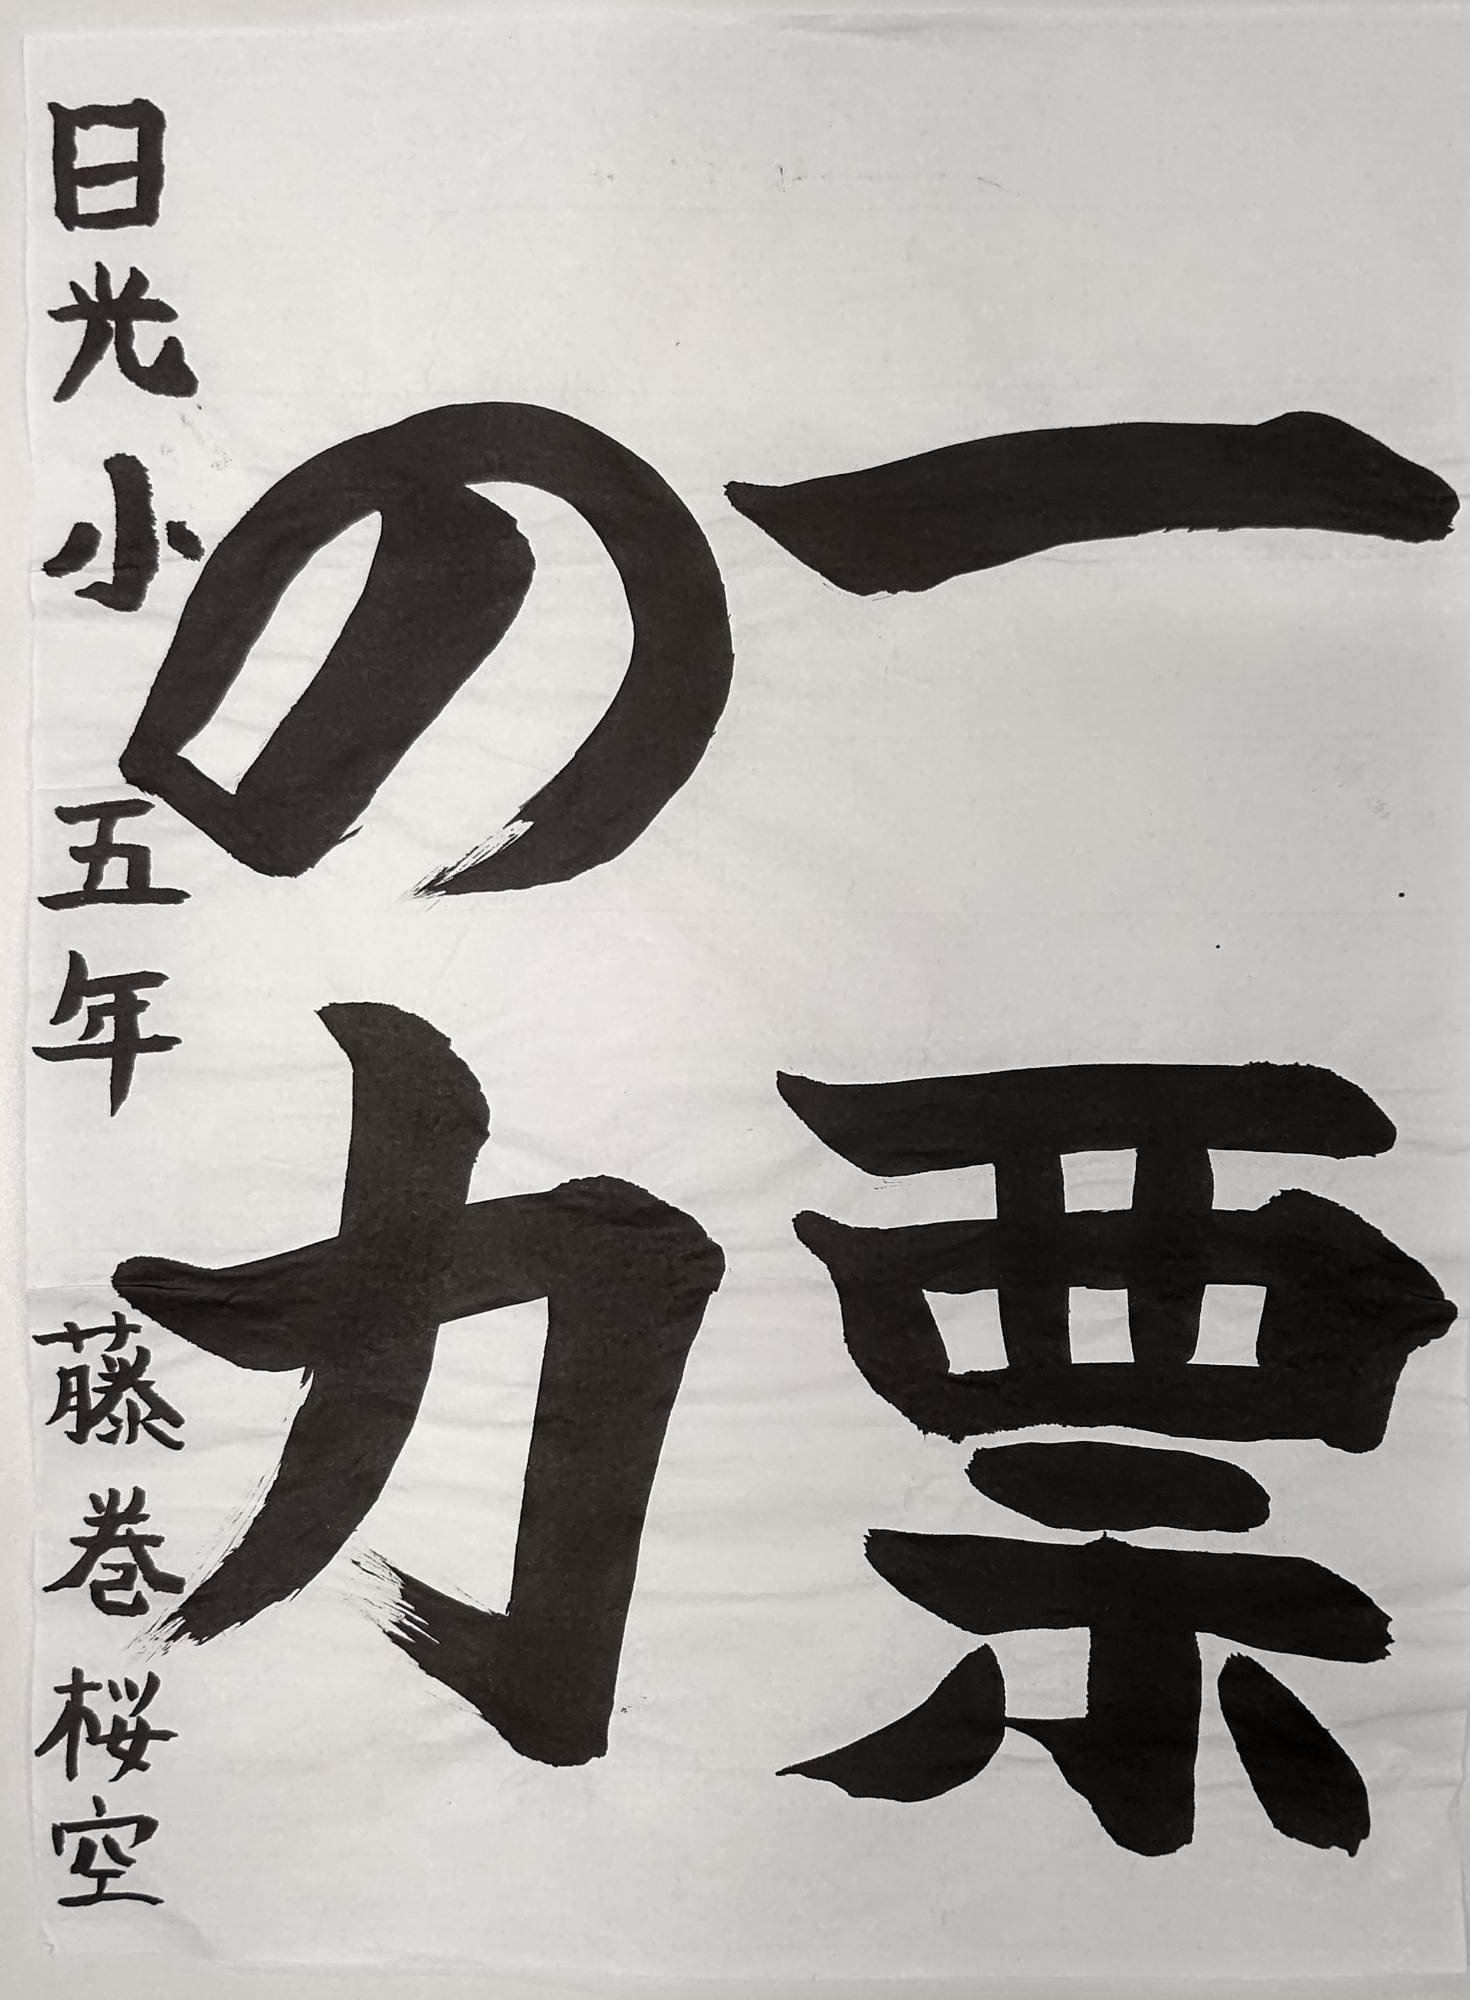 一票
の力
日光小 五年 藤巻桜空